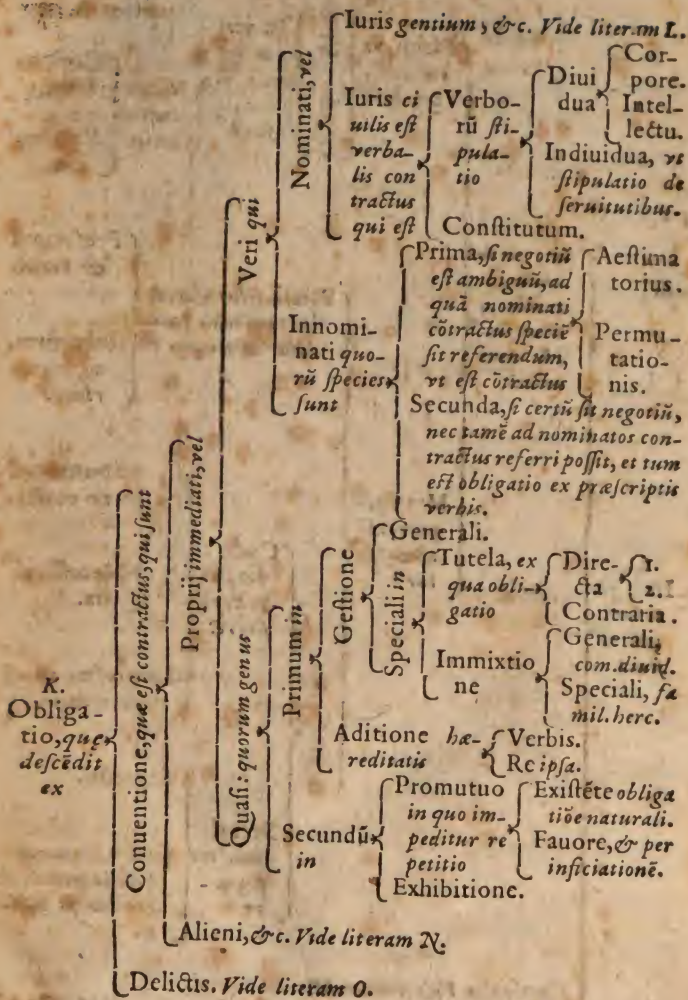 K.
Obliga-
tio, quę
descēdit
ex
Conuentione, quæ est contractus, qui sunt
Proprij immediati, vel
Veri qui
Nominati, vel
Iuris gentium, &c. Vide literam L.
Iuris ci
uilis est
verba-
lis con
tractus
qui est
Verbo-
rū sti-
pula-
tio
Diui
dua
Cor-
pore.
Intel-
lectu.
Indiuidua, vt
stipulatio de
seruitutibus.
Constitutum.
Innomi-
nati quo-
rū species
sunt
Prima, si negotiū
est ambiguū, ad
quā nominati
cōtractus speciē
sit referendum,
vt est cōtractus
Aestima
torius.
Permu-
tatio-
nis.
Secunda, si certū sit negotiū,
nec tamē ad nominatos con-
tractus referri possit, et tum
est obligatio ex præscriptis
verbis.
Quasi: quorum genus
Primum in
Gestione
Generali.
Speciali in
Tutela, ex
qua obli-
gatio
Dire-
cta
1.
2.
Contraria.
Immixtio
ne
Generali,
com. diuid.
Speciali, fa
mil. herc.
Aditione hæ-
reditatis
Verbis.
Re ipsa.
Secundū
in
Promutuo
in quo im-
peditur re
petitio
Existēte obliga
tiōe naturali.
Fauore, & per
inficiationē.
Exhibitione.
Alieni, &c. Vide literam N.
Delictis. Vide literam O.